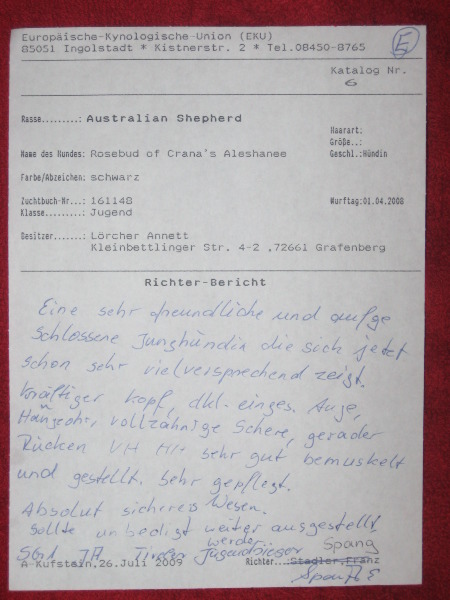 Europäische-Kynologische-Union (EKU)
85051 Ingolstadt * Kistnerstr. 2 * Tel.08450-8765
5
Katalog Nr.
6
Rasse.........: Australian Shepherd
Haarart:
Größe..:
Name des Hundes: Rosebud of Crana's Aleshanee
Geschl.:Hündin
Farbe/Abzeichen: schwarz
Zuchtbuch-Nr...: 161148
Wurftag:01.04.2008
Klasse.........: Jugend
Besitzer.......: Lörcher Annett
Kleinbettlinger Str. 4-2 ,72661 Grafenberg
Richter-Bericht
Eine sehr freundliche und aufge
schlossene Junghündin die sich jetzt
schon sehr vielversprechend zeigt.
Kräftiger Kopf, dkl. einges. Auge,
Hängeohr, vollzahnige Schere, gerader
Rücken VH HH sehr gut bemuskelt
und gestellt. Sehr gepflegt.
Absolut sicheres Wesen.
Sollte unbedigt weiter ausgestellt
werde
SG1 Tiroler Jugendsieger Spang
A-Kufstein,26.Juli 2009
Richter...: Stadler,Franz